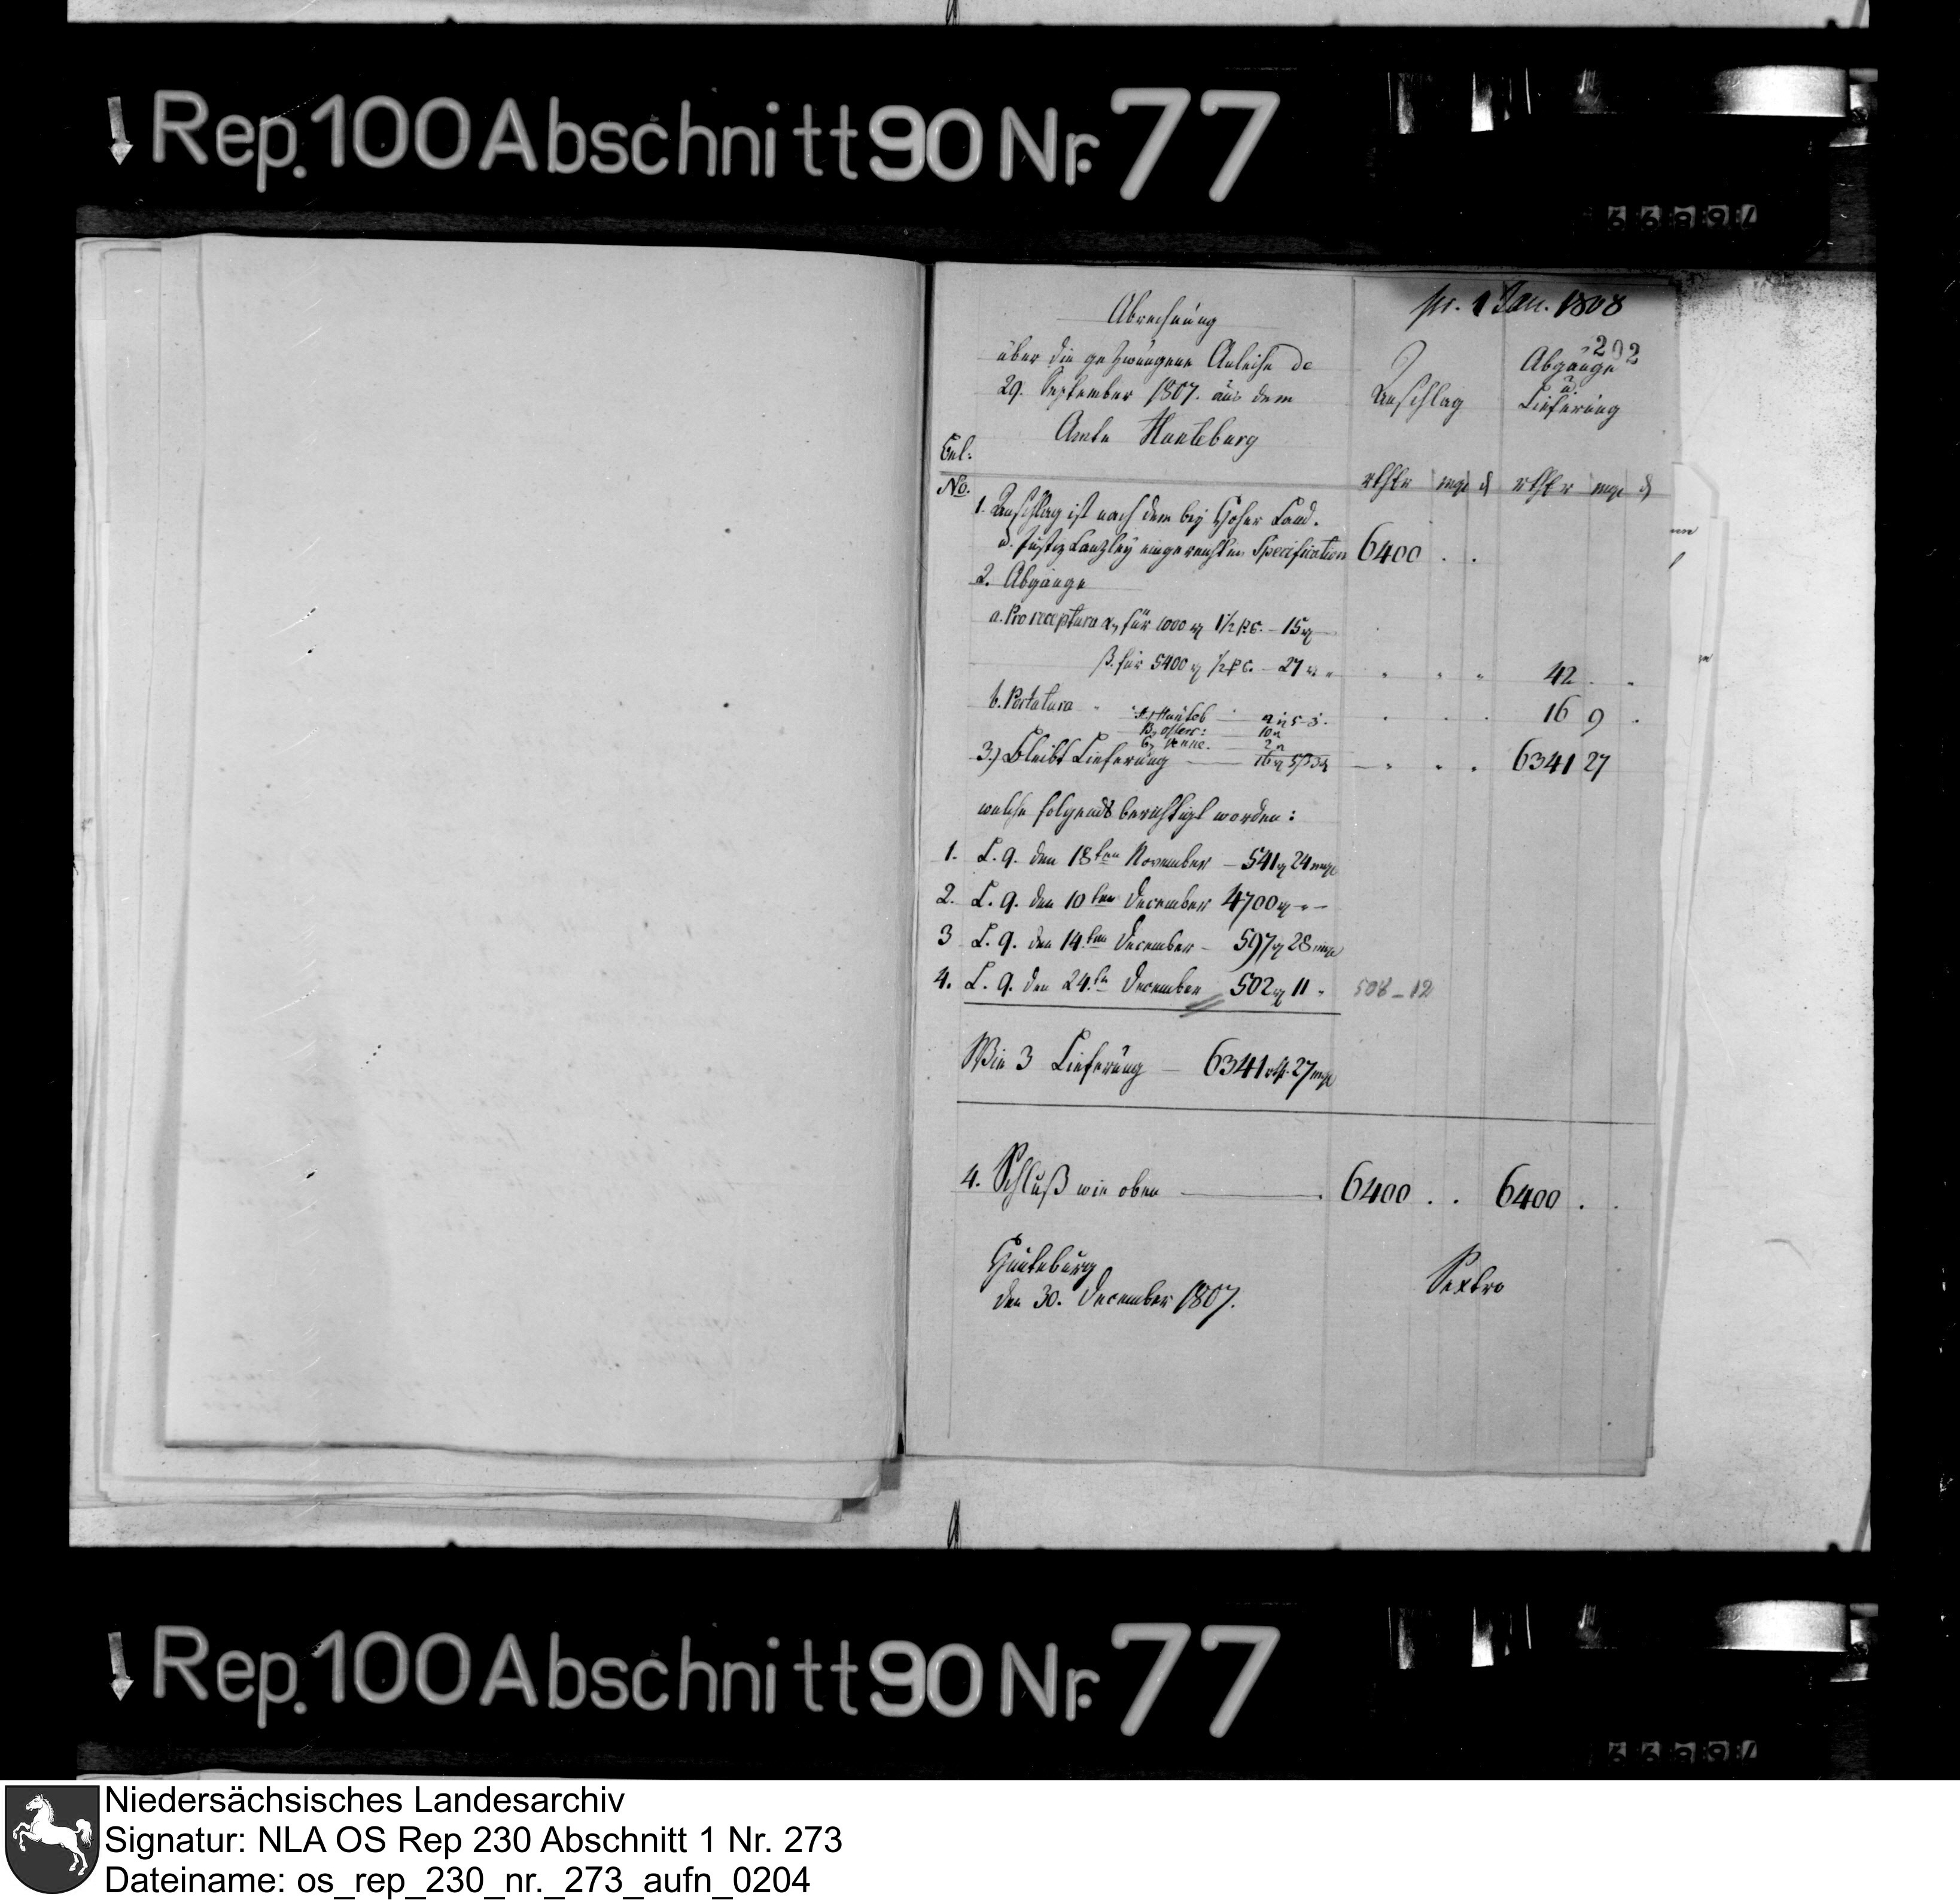 Rep. 100 Abschnitt 90 Nr. 77
pr. 1 Jan. 1808
202
Abrechnung
über die gezwungene Anleihe de
29. September 1807. aus dem
Amte Hunteburg
Anschlag
Abgänge
u.
Lieferung
Bel:
No.
rthlr mgr d rthlr mgr d
1. Anschlag ist nach dem bey Hoher Land.
u. Justiz Canzley eingereichten Specification 6400 . .
2. Abgänge
a. Pro receptura α, für 1000 rt 1½ pC. – 15 rt
β. für 5400 rt ½ pC. – 27 rt 42 . .
b. Portatura 16 9 .
3.) Bleibt Lieferung 6341 27
welche folgends berichtigt worden:
1. L. q. den 18ten November – 541 rt 24 mgr
2. L. q. den 10ten December 4700 rt - -
3 L. q. den 14ten December – 597 rt 28 mgr
4. L. q. den 24ten December 502 rt 11 " 508 – 12
Wie 3 Lieferung – 6341 rth. 27 mgr
4. Schluß wie oben 6400 . . 6400 . .
Hunteburg
den 30. December 1807.
Sextro
Rep. 100 Abschnitt 90 Nr. 77
Niedersächsisches Landesarchiv
Signatur: NLA OS Rep 230 Abschnitt 1 Nr. 273
Dateiname: os_rep_230_nr._273_aufn_0204